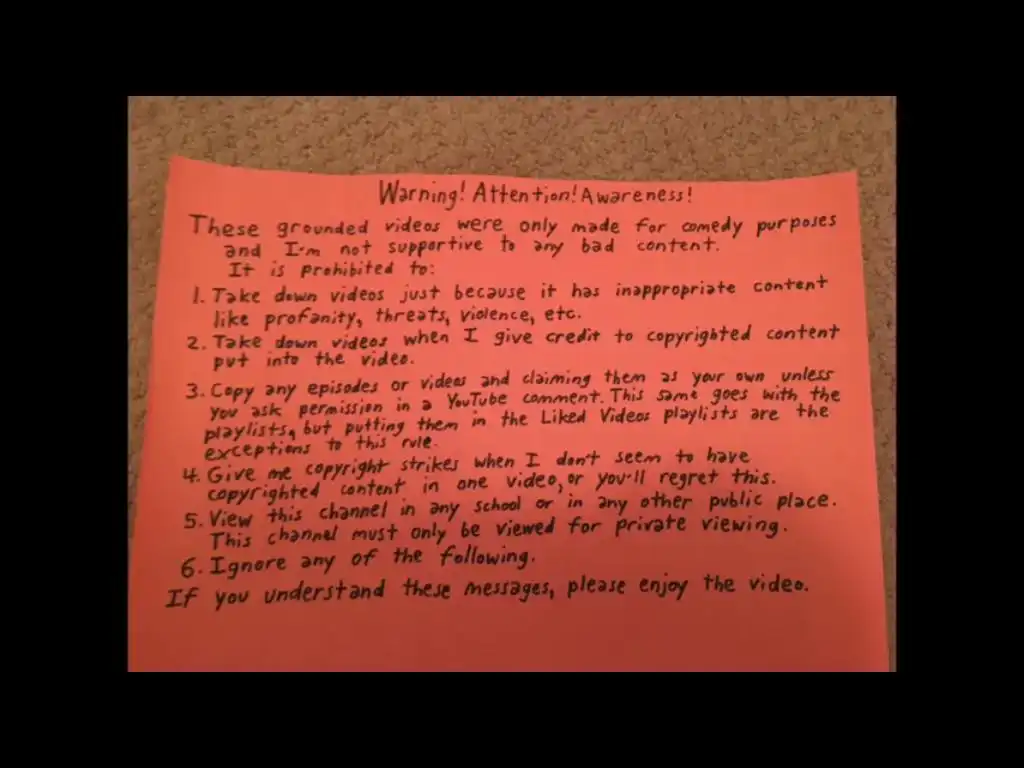 Warning! Attention! Awareness!
These grounded videos were only made for comedy purposes
and I'm not supportive to any bad content.
It is prohibited to:
1. Take down videos just because it has inappropriate content
like profanity, threats, violence, etc.
2. Take down videos when I give credit to copyrighted content
put into the video.
3. Copy any episodes or videos and claiming them as your own unless
you ask permission in a YouTube comment. This same goes with the
playlists, but putting them in the Liked Videos playlists are the
exceptions to this rule.
4. Give me copyright strikes when I don't seem to have
copyrighted content in one video, or you'll regret this.
5. View this channel in any school or in any other public place.
This channel must only be viewed for private viewing.
6. Ignore any of the following.
If you understand these messages, please enjoy the video.